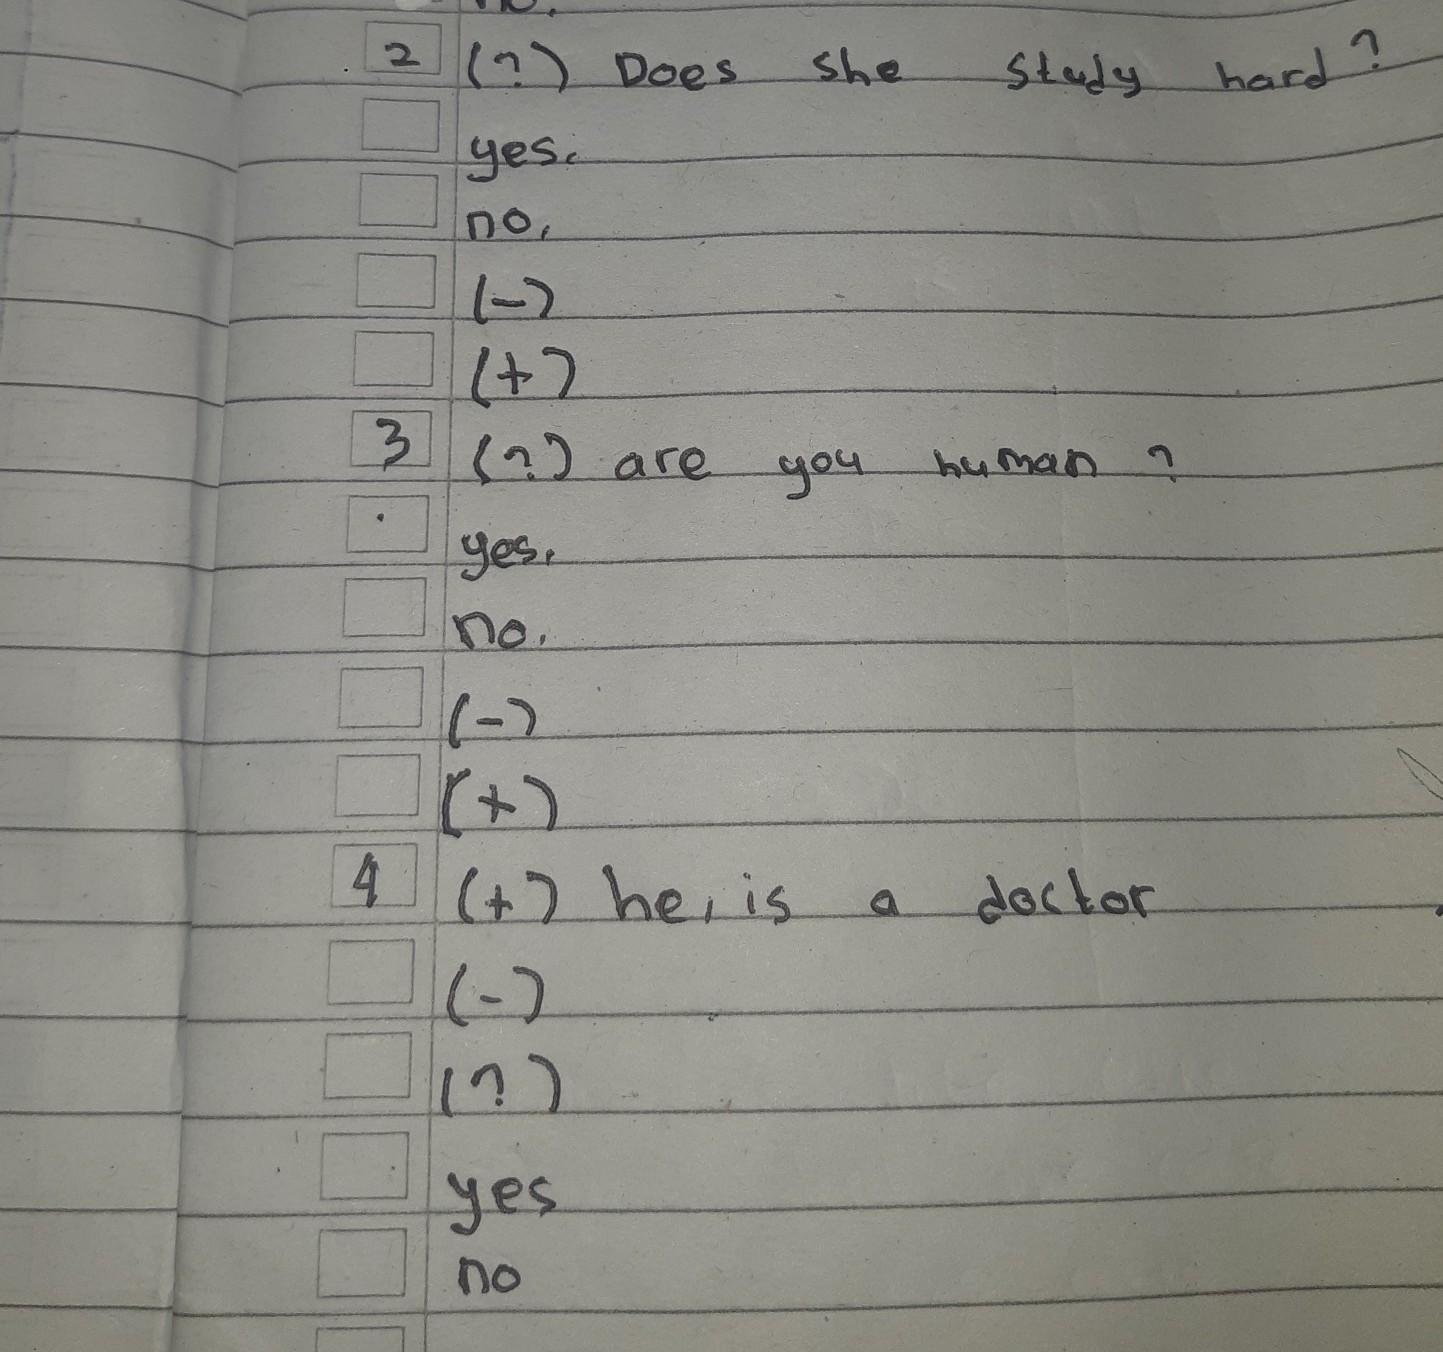 no.
2 (?) Does she study hard?
yes.
no,
(-)
(+)
3 (?) are you human ?
yes,
no.
(-)
(+)
4 (+) he, is a doctor
(-)
(?)
yes
no